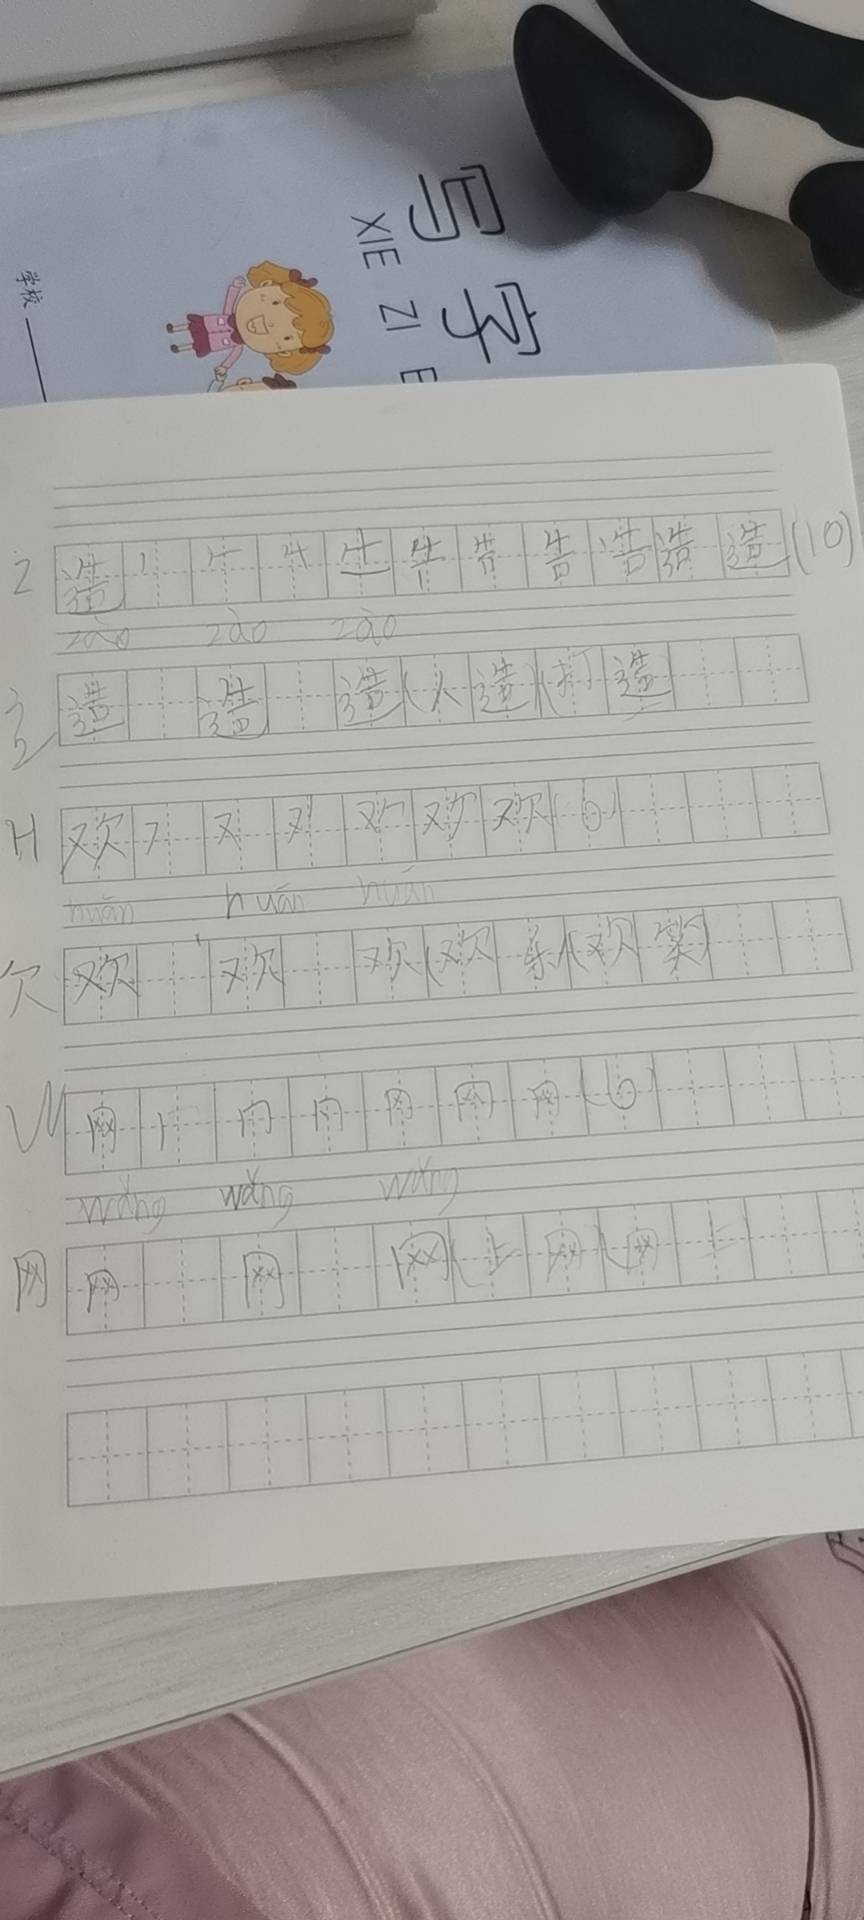 写字
XIE ZI
学校
Z 造 丨 告 告 告 造 造 (10)
zào zào zào
辶 造 造 造(人造(打造
H 欢 フ 又 欢(6)
huān huān huān
欠 欢 欢 欢(欢乐(欢笑)
W 网 丨 冂 网 网(6)
wǎng wǎng wǎng
网 网 网 网(上网(网上